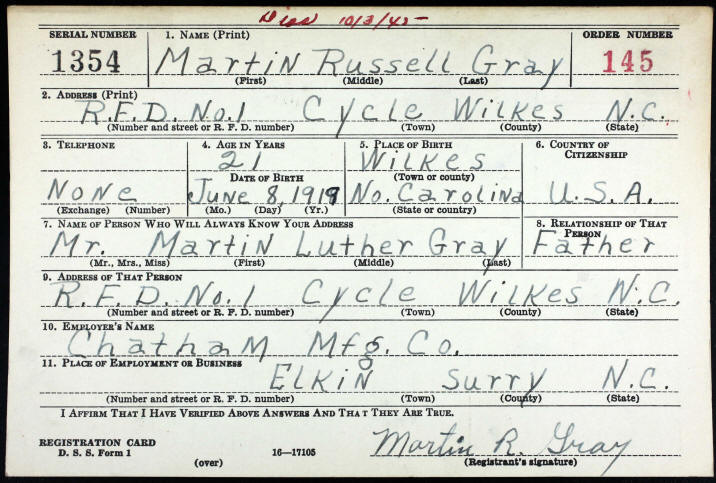 Disc 10/3/45
SERIAL NUMBER 1. NAME (Print) ORDER NUMBER
1354 Martin Russell Gray 145
(First) (Middle) (Last)
2. ADDRESS (Print)
R.F.D. No.1 Cycle Wilkes N.C.
(Number and street or R. F. D. number) (Town) (County) (State)
3. TELEPHONE 4. AGE IN YEARS 5. PLACE OF BIRTH 6. COUNTRY OF CITIZENSHIP
21 Wilkes
DATE OF BIRTH (Town or county)
None June 8, 1919 No. Carolina U.S.A.
(Exchange) (Number) (Mo.) (Day) (Yr.) (State or country)
7. NAME OF PERSON WHO WILL ALWAYS KNOW YOUR ADDRESS 8. RELATIONSHIP OF THAT PERSON
Mr. Martin Luther Gray Father
(Mr., Mrs., Miss) (First) (Middle) (Last)
9. ADDRESS OF THAT PERSON
R.F.D. No.1 Cycle Wilkes N.C.
(Number and street or R. F. D. number) (Town) (County) (State)
10. EMPLOYER'S NAME
Chatham Mfg. Co.
11. PLACE OF EMPLOYMENT OR BUSINESS
Elkin Surry N.C.
(Number and street or R. F. D. number) (Town) (County) (State)
I AFFIRM THAT I HAVE VERIFIED ABOVE ANSWERS AND THAT THEY ARE TRUE.
REGISTRATION CARD Martin R. Gray
D. S. S. Form 1 16—17105 (Registrant's signature)
(over)